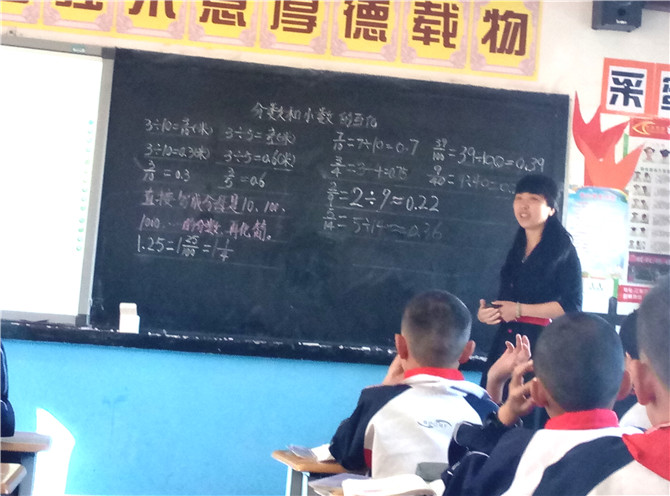 自强不息厚德载物
分数和小数的互化
3÷10=3/10(米) 3÷5=3/5(米)
3÷10=0.3(米) 3÷5=0.6(米)
3/10=0.3 3/5=0.6
直接写成分母是10、100、
1000……的分数,再化简。
1.25=1 25/100=1 1/4
7/10=7÷10=0.7 39/100=39÷100=0.39
3/4=3÷4=0.75 9/40=9÷40=0.
2/9=2÷9≈0.22
5/14=5÷14≈0.36
采